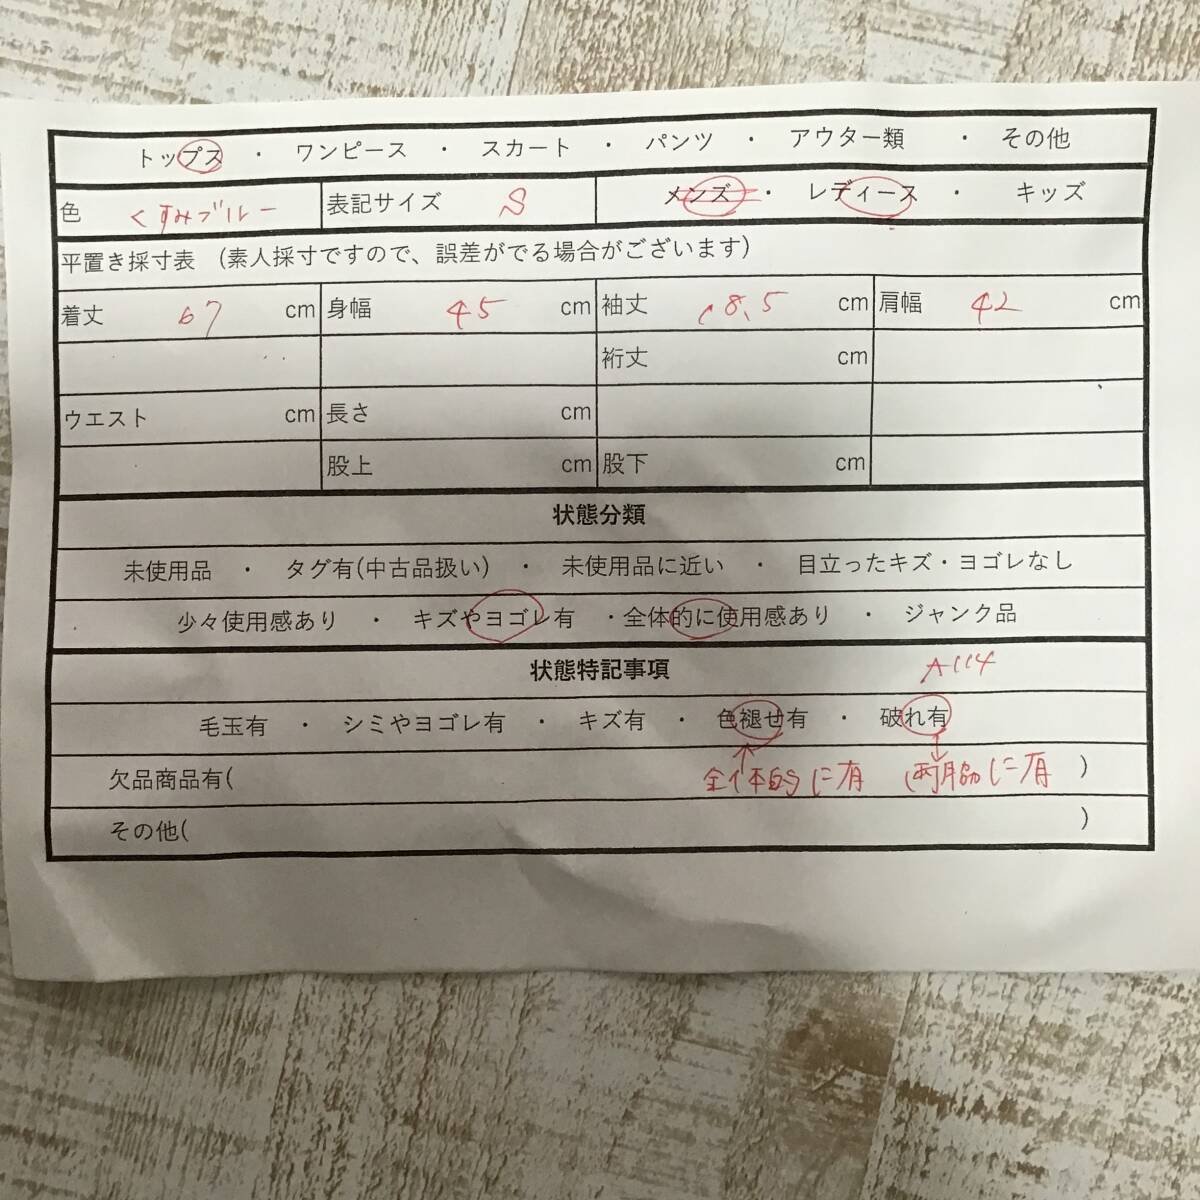 トップス ・ ワンピース ・ スカート ・ パンツ ・ アウター類 ・ その他
色 くすみブルー 表記サイズ S メンズ ・ レディース ・ キッズ
平置き採寸表 (素人採寸ですので、誤差がでる場合がございます)
着丈 67 cm 身幅 45 cm 袖丈 18.5 cm 肩幅 42 cm
裄丈 cm
ウエスト cm 長さ cm
股上 cm 股下 cm
状態分類
未使用品 ・ タグ有(中古品扱い) ・ 未使用品に近い ・ 目立ったキズ・ヨゴレなし
少々使用感あり ・ キズやヨゴレ有 ・全体的に使用感あり ・ ジャンク品
状態特記事項 A114
毛玉有 ・ シミやヨゴレ有 ・ キズ有 ・ 色褪せ有 ・ 破れ有
欠品商品有( 全体的に有 両脇に有 )
その他( )